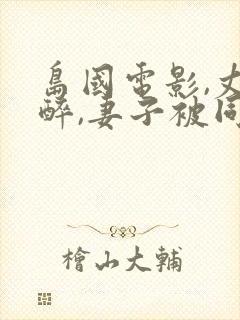 島國電影,丈
醉,妻子被同
檜山大輔